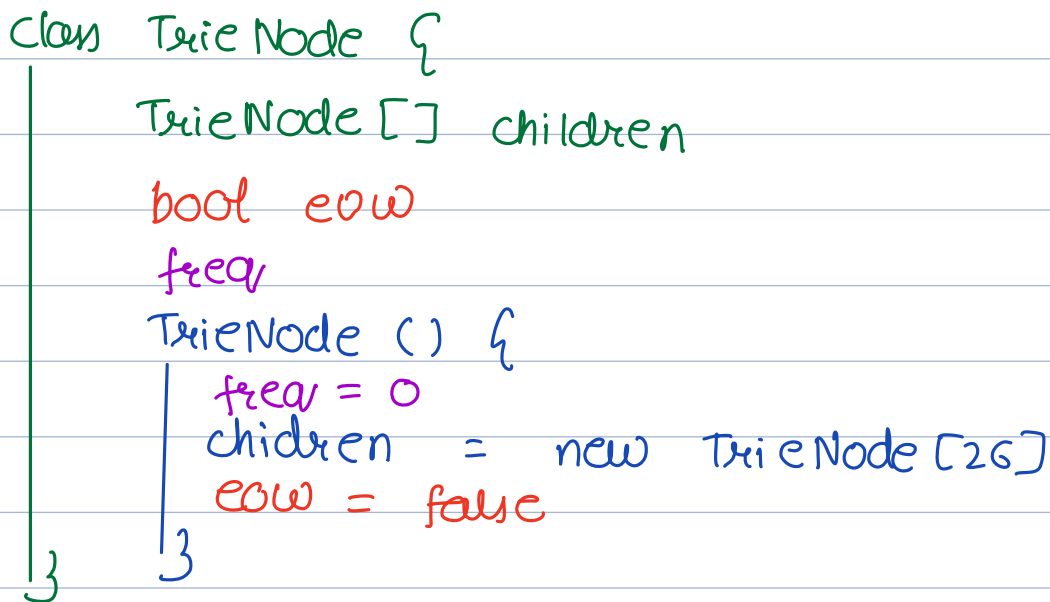 class TrieNode {
TrieNode[] children
bool eow
freq
TrieNode () {
freq = 0
chidren = new TrieNode[26]
eow = false
}
}